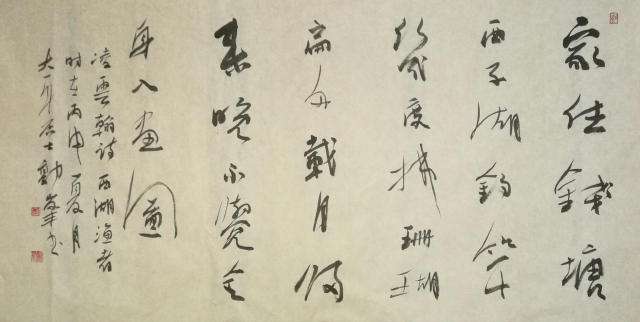 家住錢塘
西子湖釣竿
幾度拂珊瑚
扁舟載月归
来晚不覺全
身入畫圖
凌雲翰詩西湖漁者
时在丙申夏月
居士勤书